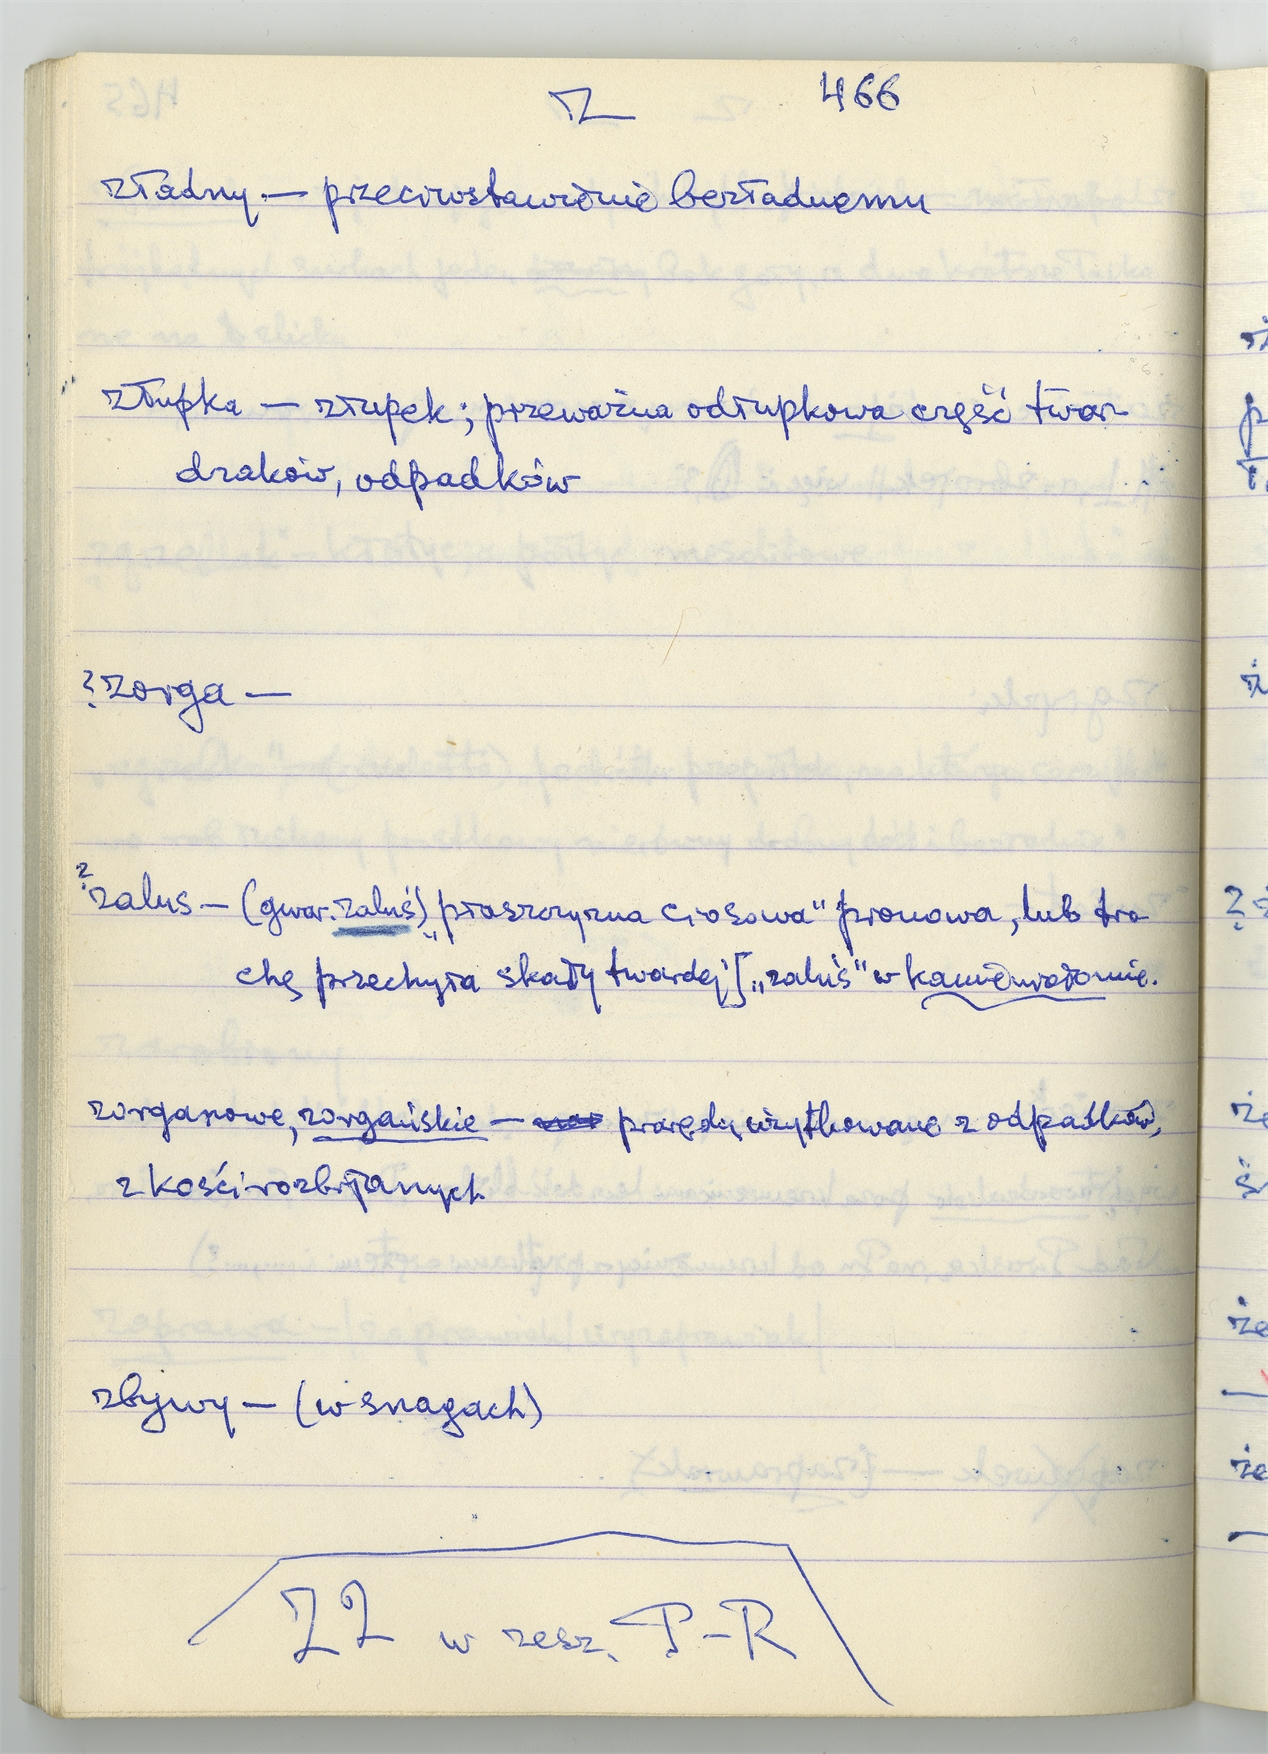 Z 466
zładny — przeciwstawienie bezładnemu
złupka — złupek; przeważna odłupkowa część twar-
dzaków, odpadków
? zorga —
? zalus — (gwar. zaluś) „płaszczyzna ciosowa" pionowa, lub tro-
chę przechyła skały twardej [„zaluś" w kamieniołomie.
zorganowe, zorgańskie — narzędzia użytkowane z odpadków,
z kości rozbijanych
zbywy — (w snagach)
ZZ w zesz. P-R